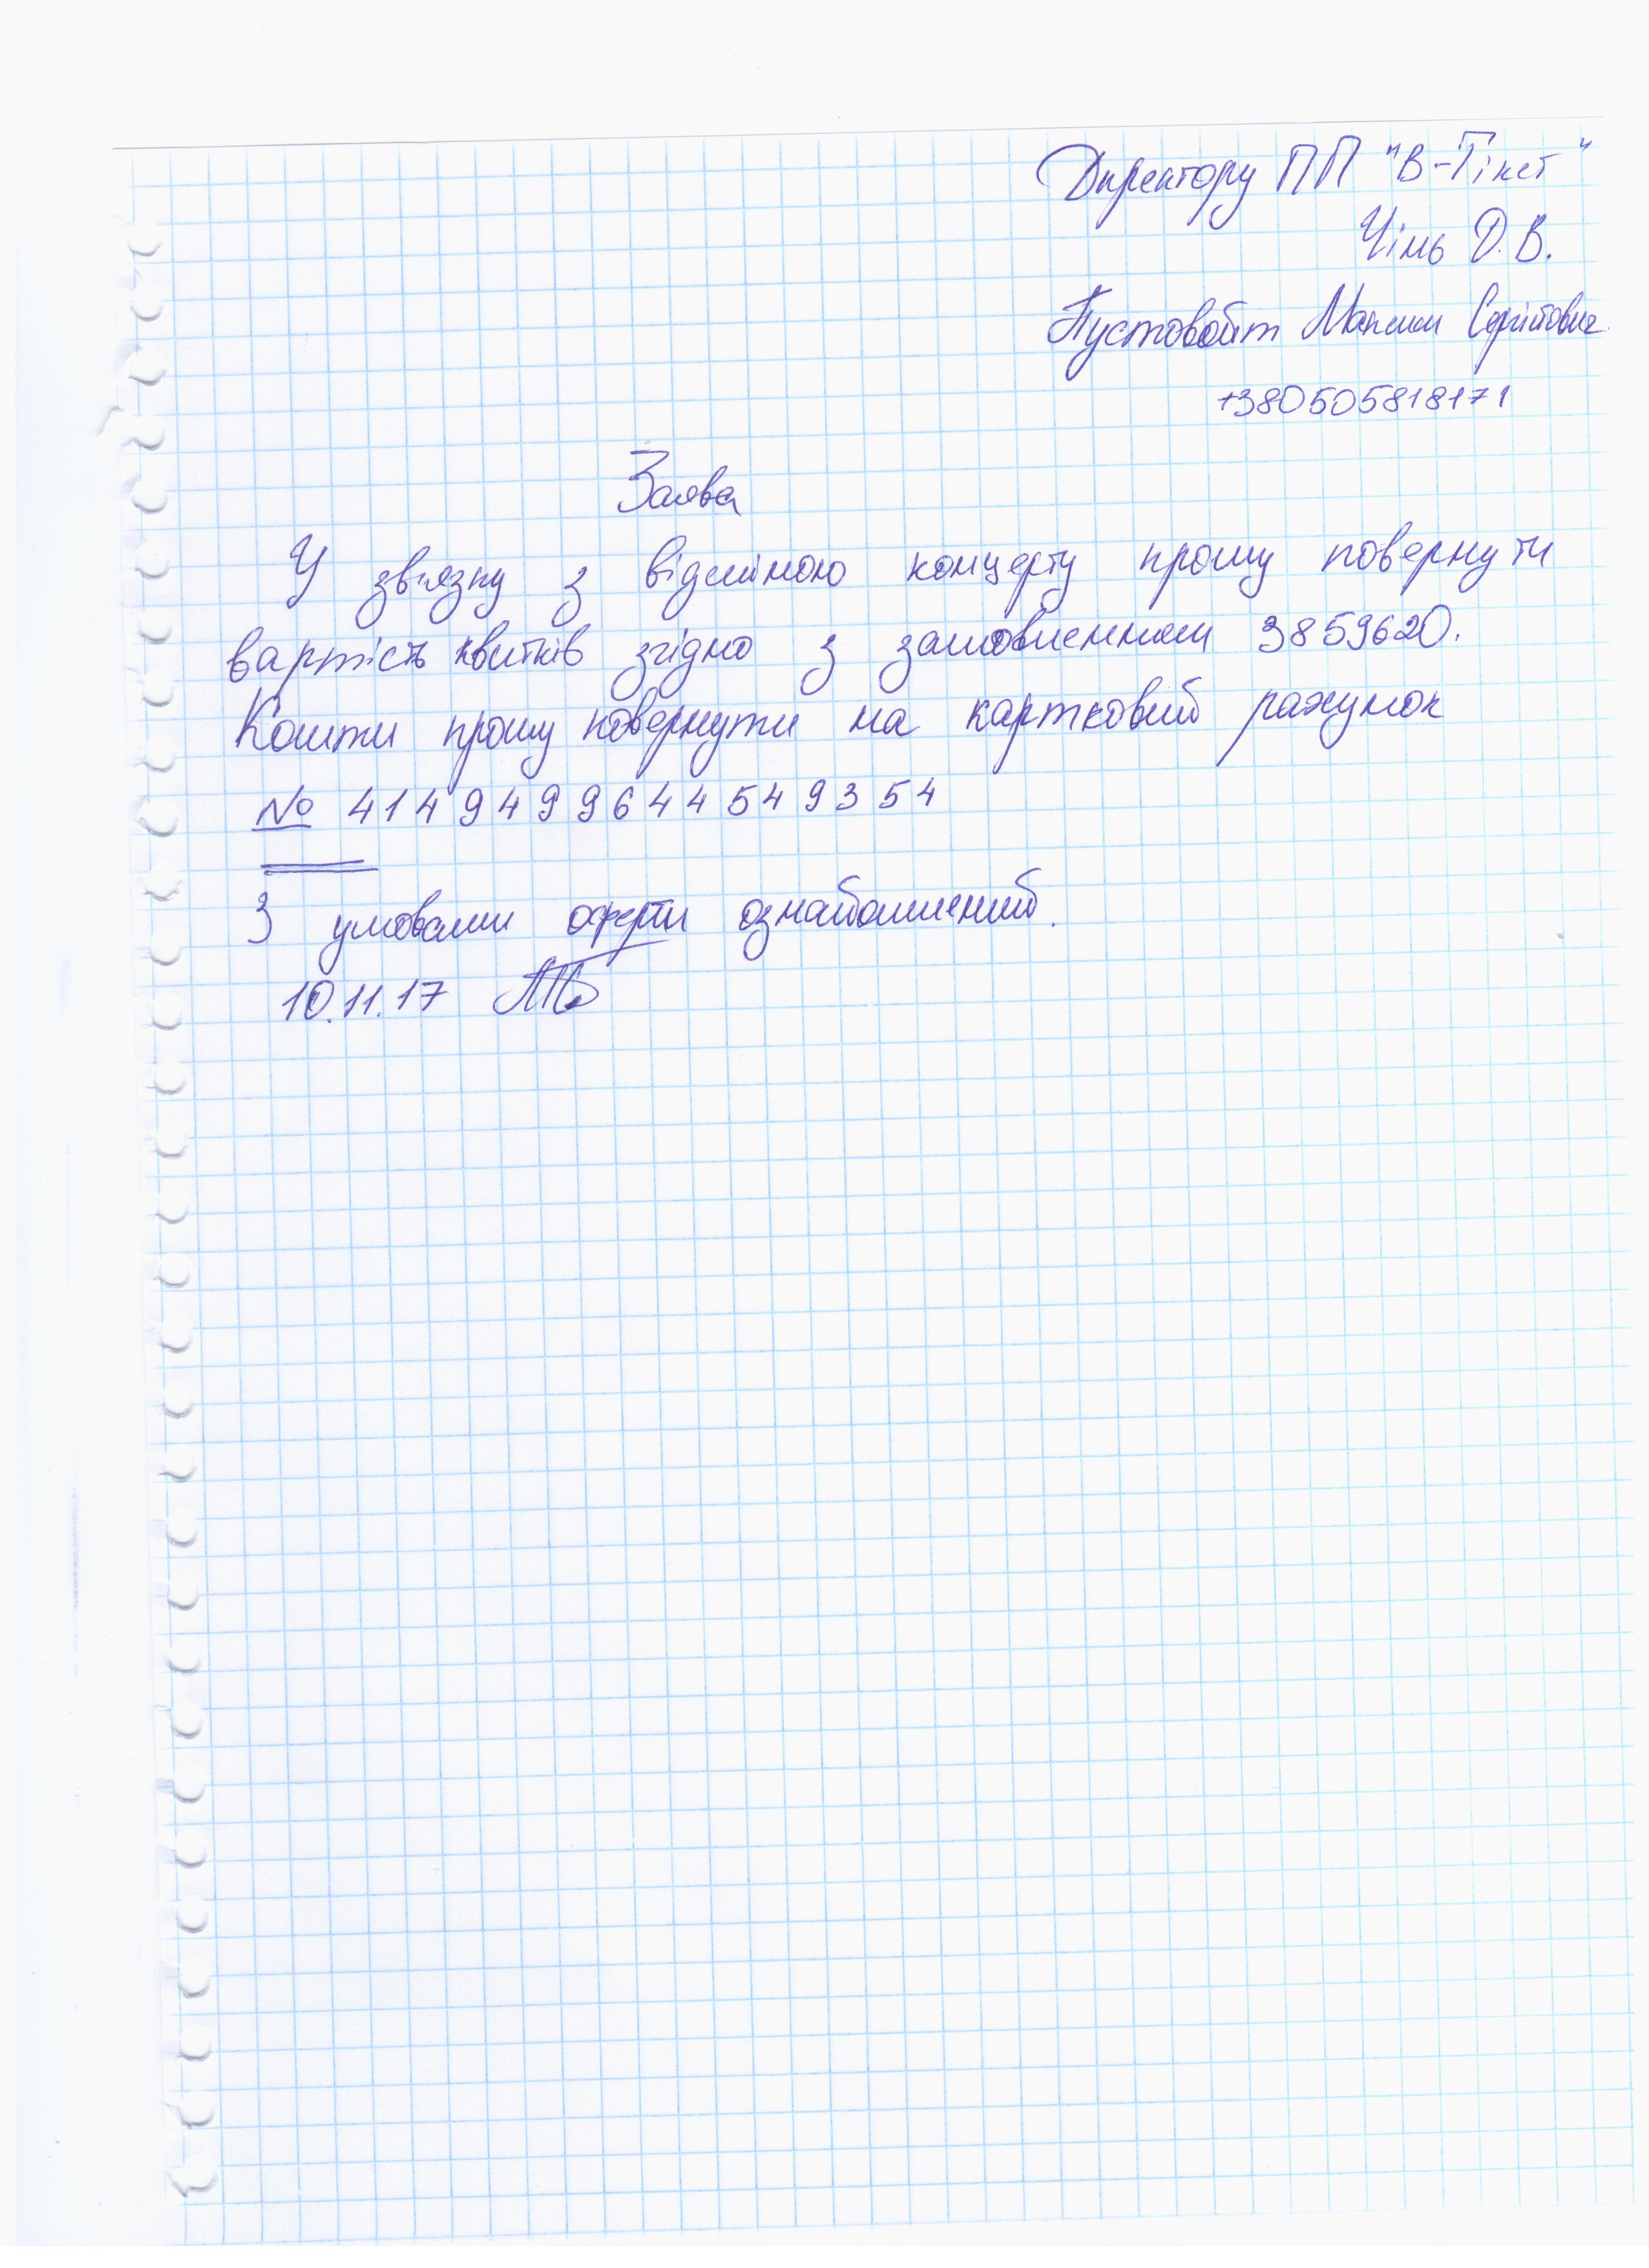 Директору ПП "В-Тікет"
Чінь Д.В.
Пустовойт Максим Сергійович
+380505818171
Заява
У зв'язку з відміною концерту прошу повернути
вартість квитків згідно з замовленням 3859620.
Кошти прошу повернути на картковий рахунок
№ 4149499644549354
З умовами оферти ознайомлений.
10.11.17